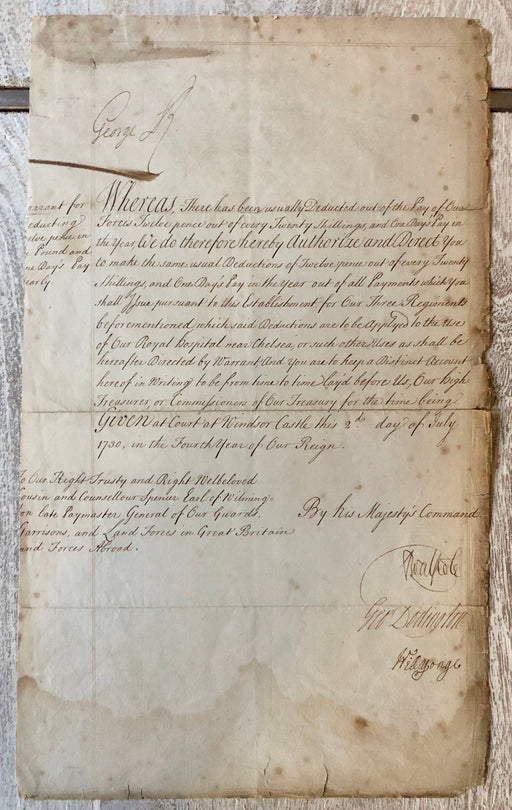 George R
arrant for
educting
elve pence in
e Pound and
ne Day's Pay
early.
Whereas, There has been usually Deducted out of the Pay of Our
Forces Twelve pence out of every Twenty Shillings, and One Day's Pay in
the Year, We do therefore hereby Authorize and Direct You
to make the same usual Deductions of Twelve pence out of every Twenty
Shillings, and One Day's Pay in the Year out of all Payments which You
shall Issue pursuant to this Establishment for Our Three Regiments
beforementioned, which said Deductions are to be Apply'd to the Use
of Our Royal Hospital near Chelsea, or such other Uses as shall be
hereafter Directed by Warrant And You are to keep a Distinct Account
hereof in Writing to be from time to time lay'd before Us, Our High
Treasurer, or Commissioners of Our Treasury for the time being
Given at Court at Windsor Castle this 2d. day of July
1730, in the Fourth Year of Our Reign.
To Our Right Trusty and Right Welbeloved
Cousin and Counsellour Spencer Earl of Wilming=
ton late Paymaster General of Our Guards,
Garrisons, and Land Forces in Great Britain
and Forces Abroad.
By his Majesty's Command
RWalpole
Geo Dodington
Will Yonge